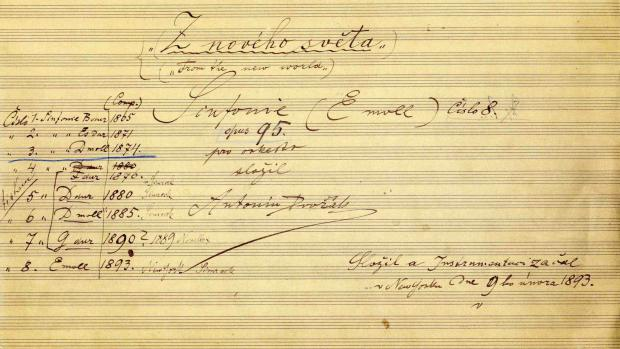 „Z nového světa„
(„From the new world„)
Sinfonie (E moll) Číslo 8.
opus 95.
pro orkestr
složil
Antonín Dvořák
(Comp.)
Číslo 1. Sinfonie B dur 1865
„ 2. „ „ Es dur 1871
„ 3. „ D moll 1874.
„ 4 „ D dur 1880
F dur 1870.
„ 5 „ D dur 1880
„ 6 „ D moll 1885.
„ 7 „ G dur 1890? 1889
„ 8. E moll 1893. New York Simrock
Složil a Instrumentaci začal
v New Yorku dne 9ho února 1893.